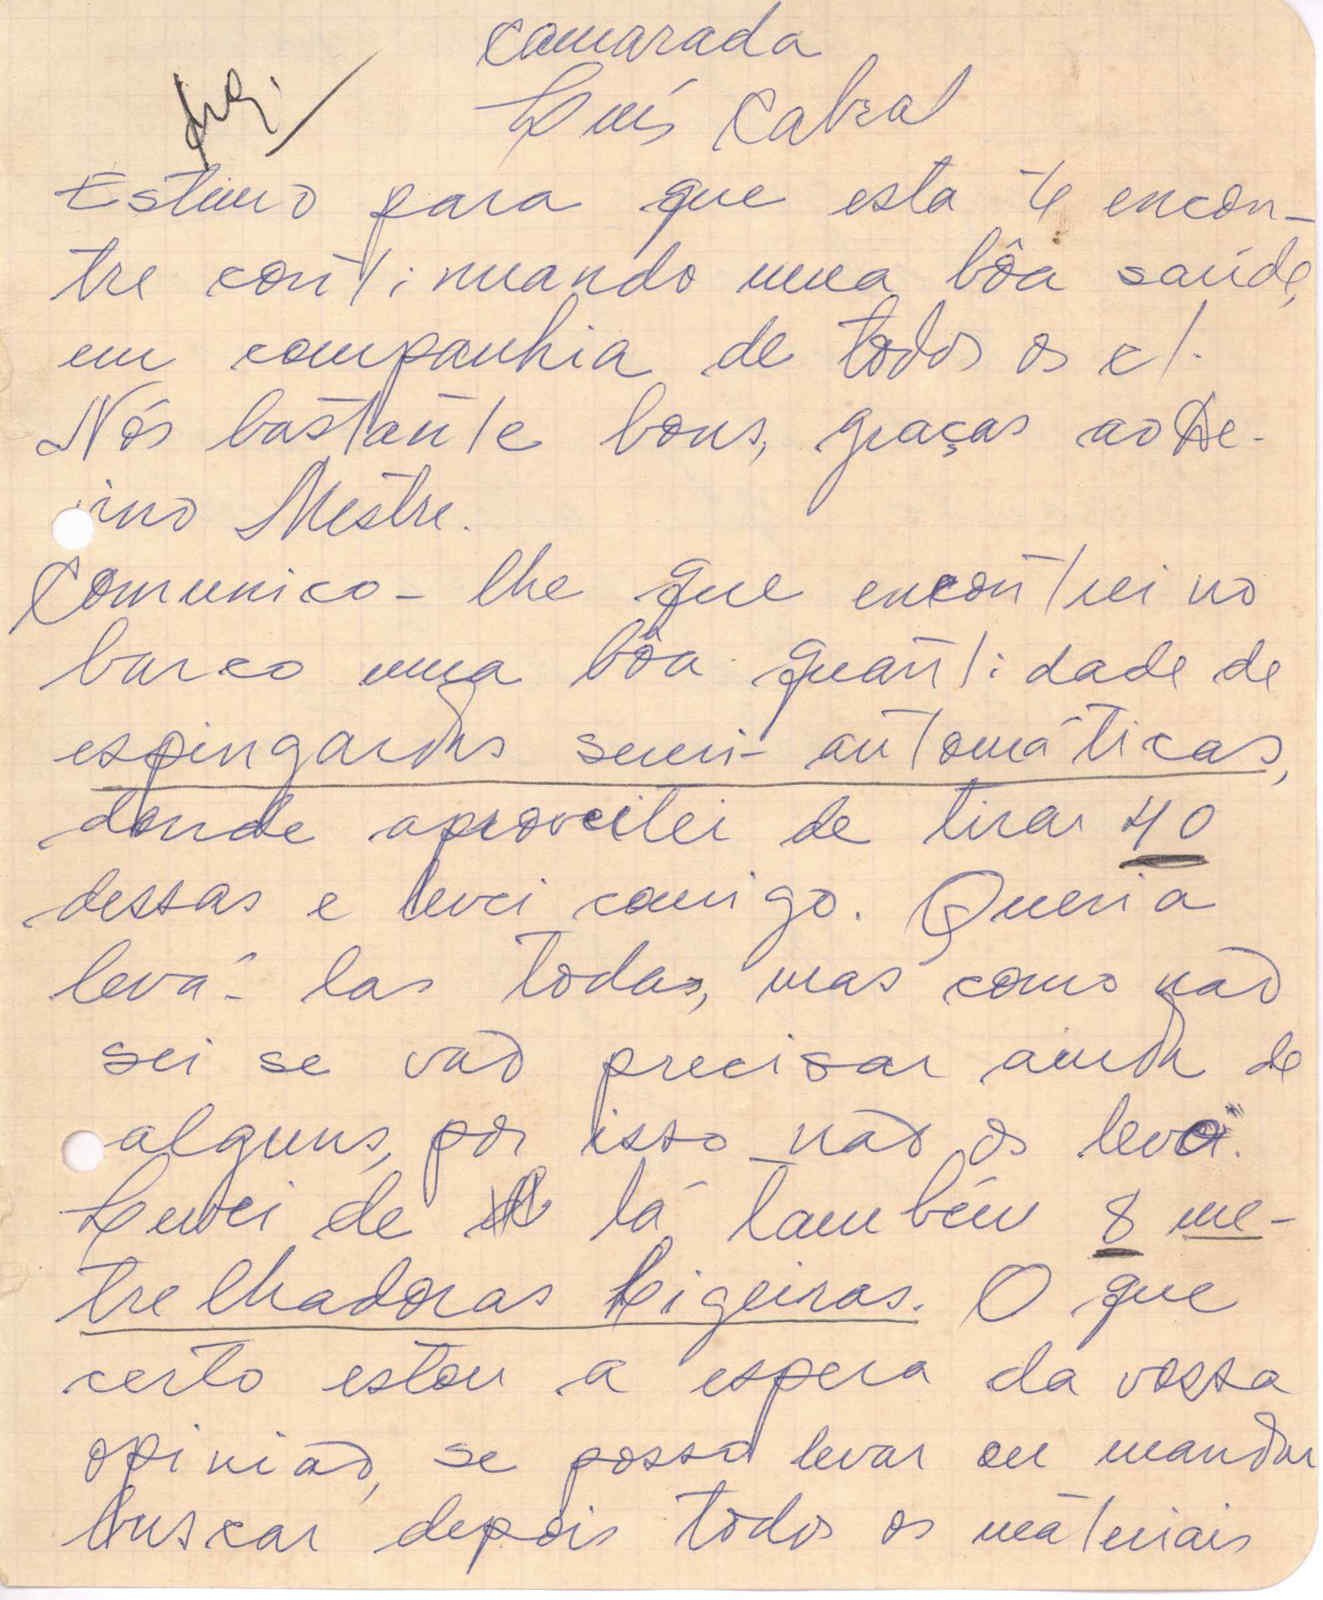 Camarada
Luís Cabral
Estimo para que esta te encon-
tre continuando uma bôa saúde,
em companhia de todos os ct.
Nós bastante bons, graças ao De-
vino Mestre.
Comunico-lhe que encontrei no
barco uma bôa quantidade de
espingardas semi-automáticas,
donde aproveitei de tirar 40
dessas e levei comigo. Queria
levá-las todas, mas como não
sei se vão precisar ainda de
alguns, por isso não os levo.
Levei de lá também 8 me-
trelhadoras Ligeiras. O que
certo estou a espera da vossa
opinião, se posso levar ou mandar
buscar depois todos os materiais